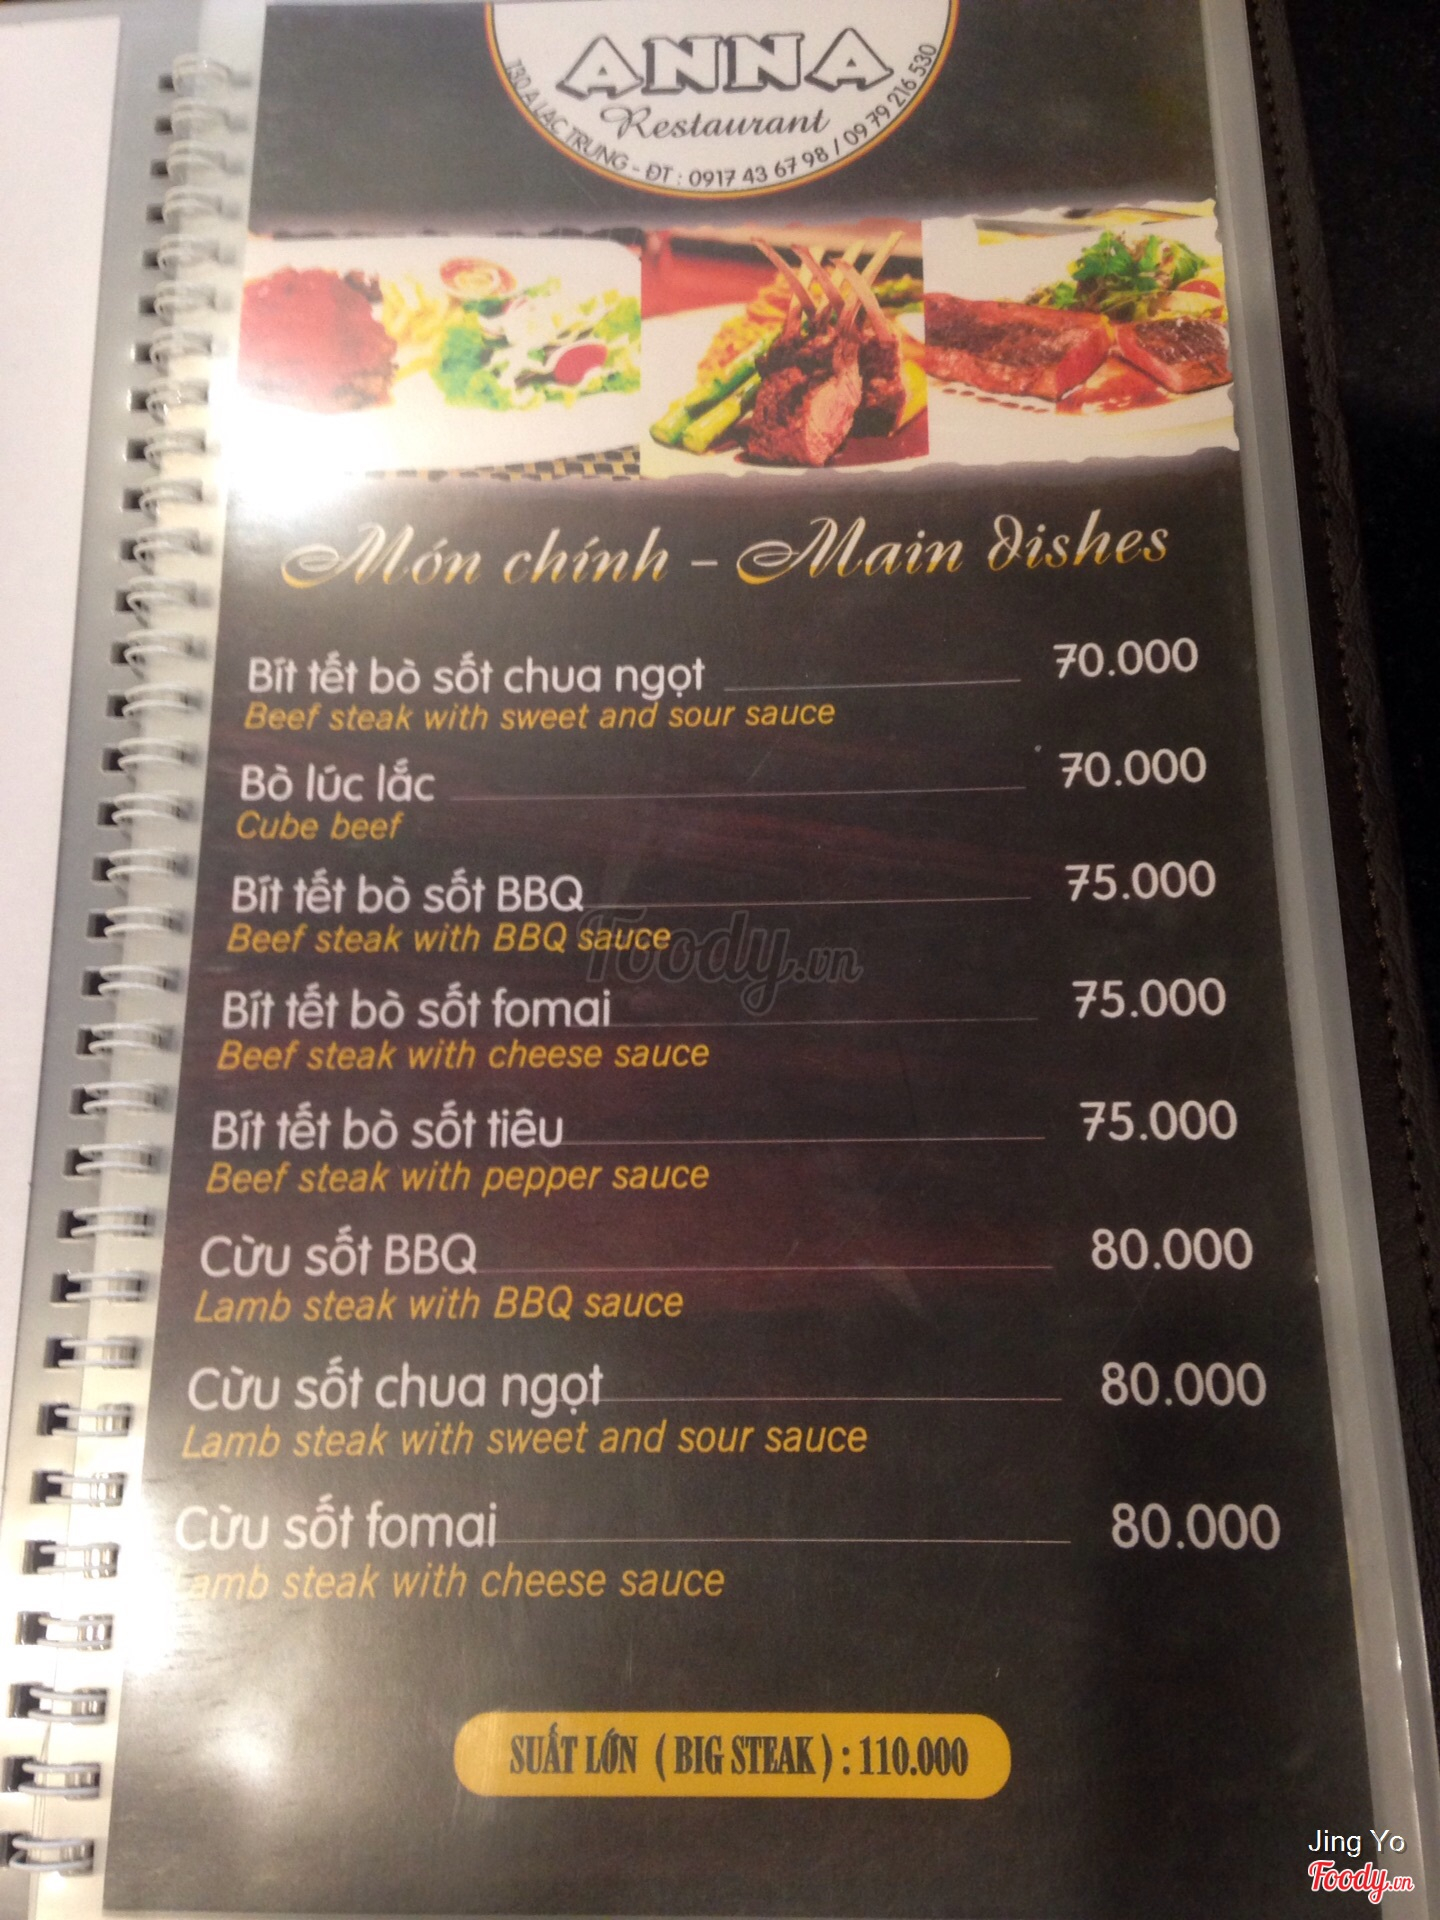 ANNA
Restaurant
730 A LẠC TRUNG - ĐT : 0917 43 67 98 / 09 79 216 530
Món chính - Main dishes
Bít tết bò sốt chua ngọt 70.000
Beef steak with sweet and sour sauce
Bò lúc lắc 70.000
Cube beef
Bít tết bò sốt BBQ 75.000
Beef steak with BBQ sauce
Bít tết bò sốt fomai 75.000
Beef steak with cheese sauce
Bít tết bò sốt tiêu 75.000
Beef steak with pepper sauce
Cừu sốt BBQ 80.000
Lamb steak with BBQ sauce
Cừu sốt chua ngọt 80.000
Lamb steak with sweet and sour sauce
Cừu sốt fomai 80.000
Lamb steak with cheese sauce
SUẤT LỚN ( BIG STEAK ) : 110.000
Foody.vn
Jing Yo
Foody.vn